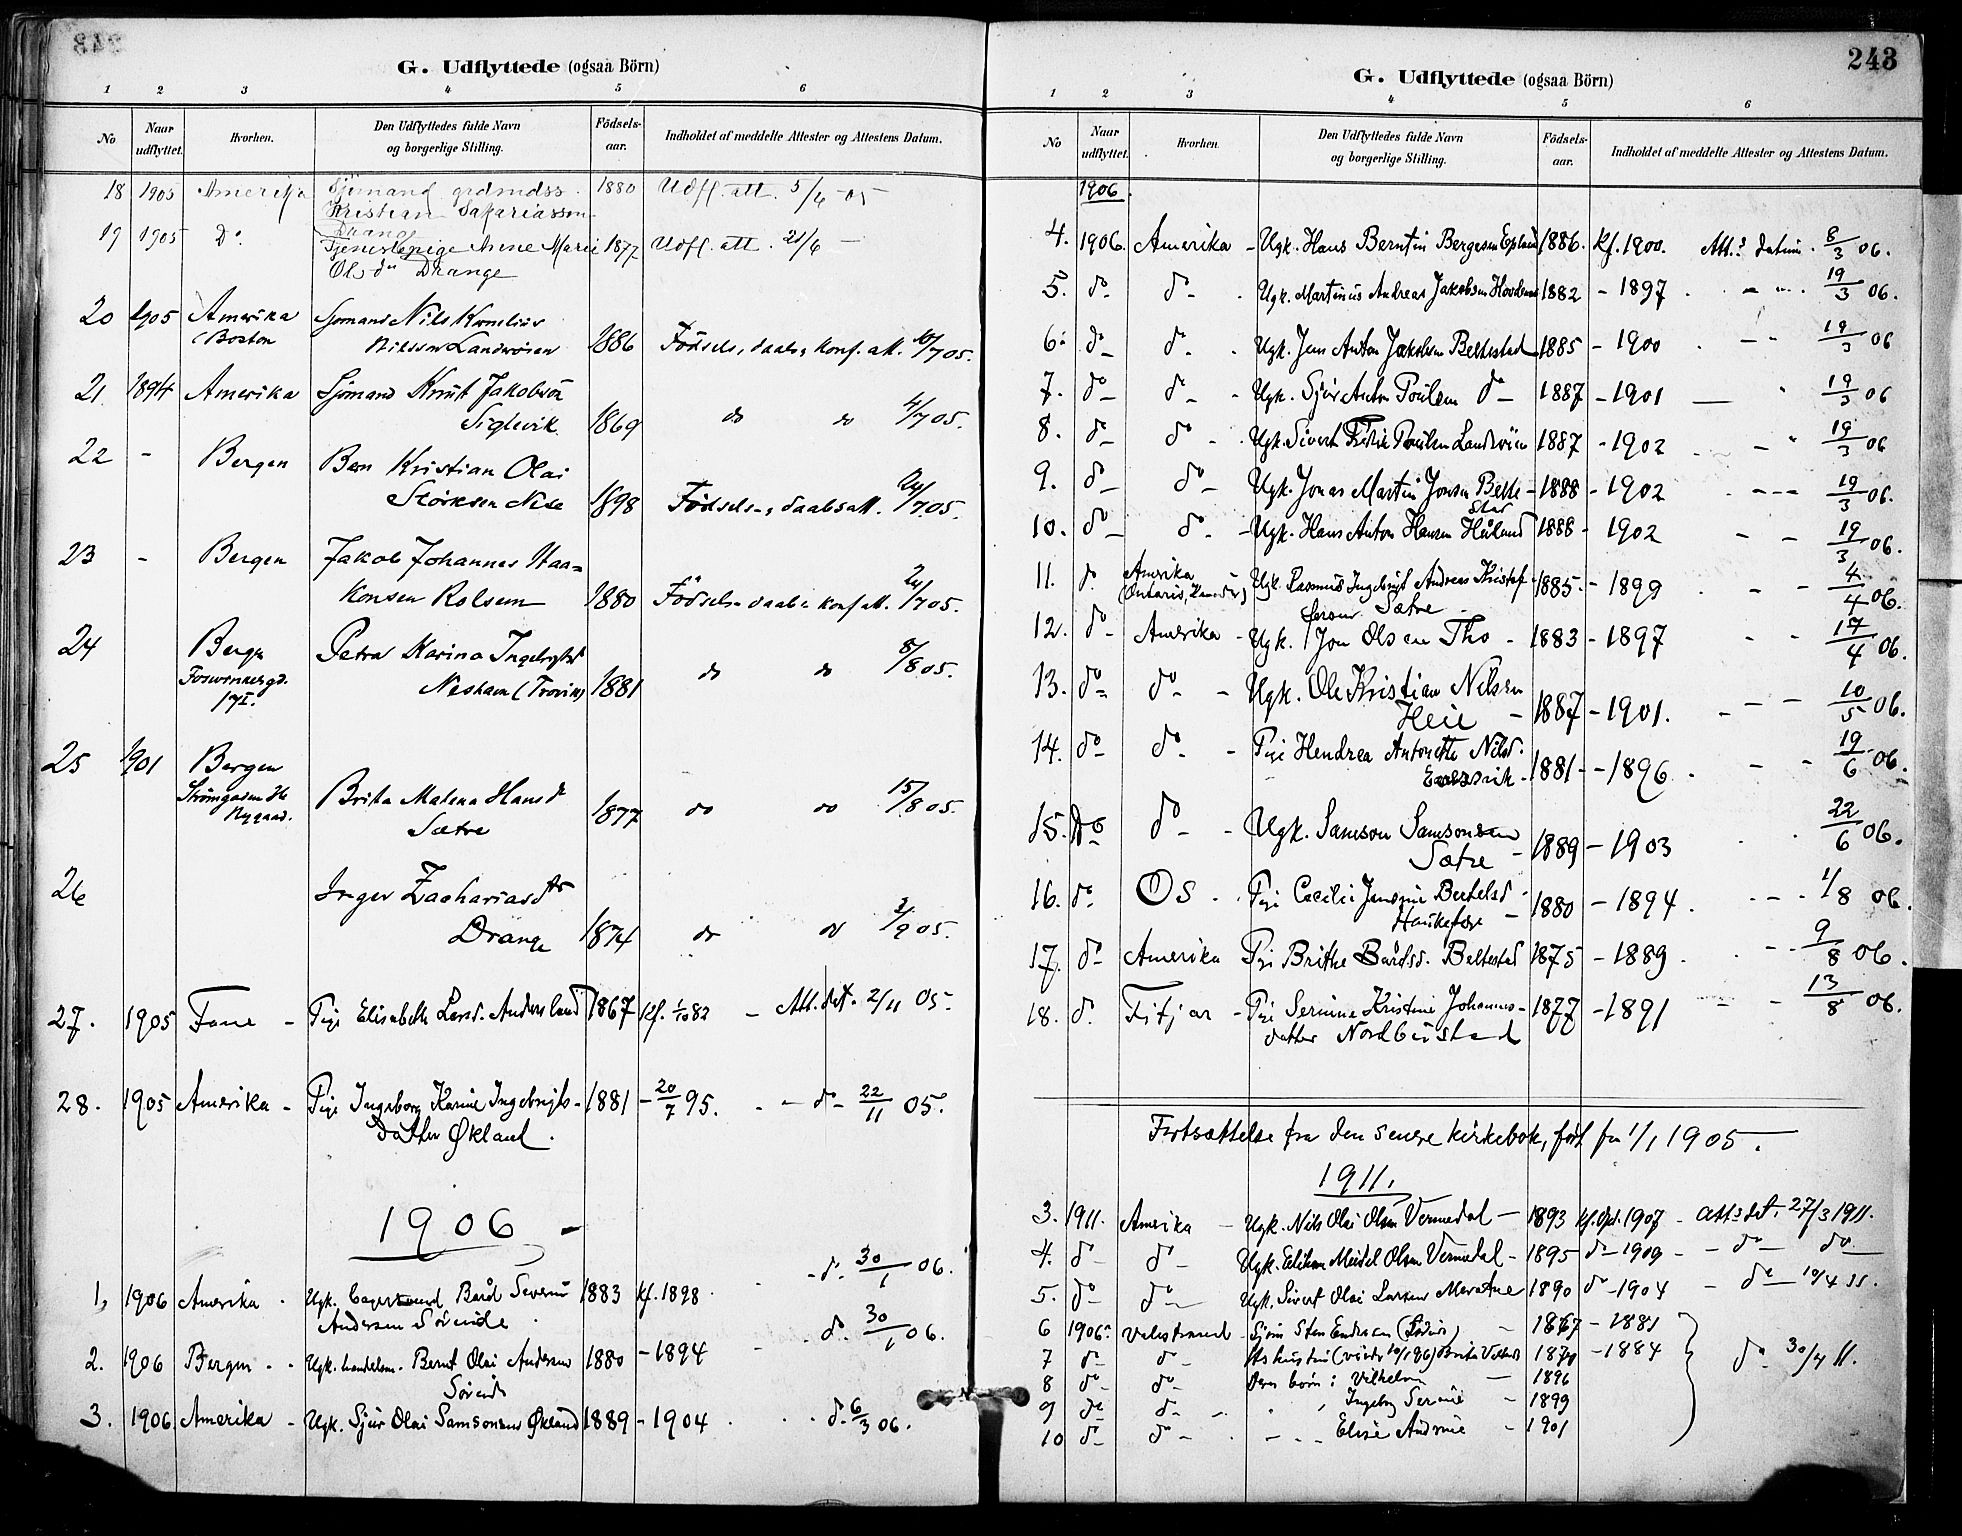 G. Udflyttede (ogsaa Börn)
1 2 3 4 5 6
No Naar udflyttet. Hvorhen. Den Udflyttedes fulde Navn og borgerlige Stilling. Födsels-aar. Indholdet af meddelte Attester og Attestens Datum.
18 1905 Amerika Sjømand 1880 Udfl. att. 5/6 05
Kristian Sakariassen
Drange
19 1905 Do Tjenestepige Anne Marie 1877 Udfl. att. 21/6 —
Olsdr Drange
20 1905 Amerika Sjømand Nils Kornelius
(Boston Nilssen Landrøien 1886 Födsels, daabs, konf. att. 10/7 05.
21 1894 Amerika Sjømand Knut Jakobsen
Siglevik 1869 do do 4/7 05.
22 - Bergen Barn Kristian Olai
Størksen Nese 1898 Födsels- daabsatt. 24/7 05.
23 - Bergen Jakob Johannes Haa=
konsen Rolsem 1880 Födsels- daabs konf att. 24/7 05.
24 Bergen Petra Karina Ingebrigtsd
Nesheim (Trovik) 1881 do do 8/8 05.
17I.
25 1901 Bergen
Strømgaden 36
Nygaard. Brita Malena Hansd 1877 do do 15/8 05.
Sætre
26 Inger Zachariasdtr
Drange 1874 do do 2/9 05.
27. 1905 Fane - Pige Elisabeth Larsd. Andersland 1867 Kf. 1/10 82 - Att. dat. 2/11 05-
28. 1905 Amerika - Pige Ingeborg Karine Ingebrigts- 1881 - 20/7 95. - do - 22/11 05.
datter Økland.
1906 -
1, 1906 Amerika Ugk. Bård Severin 1883 Kf. 1898 - do - 30/1 06.
Andersen Sørvide
2. 1906 Bergen Ugk. handelsm. Bernt Olai Andersen 1880 - 1894 do 30/1 06.
Sørvide
3. 1906. Amerika - Ugk. Sjur Olai Samsonsen Økland 1889 - 1904 do 6/3 06.
243
G. Udflyttede (ogsaa Börn)
1 2 3 4 5 6
No Naar udflyttet. Hvorhen. Den Udflyttedes fulde Navn og borgerlige Stilling. Födsels-aar. Indholdet af meddelte Attester og Attestens Datum.
1906.
4. 1906. Amerika - Ugk. Hans Berntin Bergesen Epland 1886. Kf. 1900. Att.s datum. 8/3 06.
5. do - do - Ugk. Martinus Andreas Jakobsen Hovdenes 1882 - 1897 - " - 19/3 06.
6. do - do - Ugk. Jens Anton Jakobsen Beltestad 1885 - 1900 - - 19/3 06
7. do - do - Ugk. Sjur Anton Poulsen do - 1887 - 1901 — " 19/3 06
8. do - do - Ugk. Sivert Poulsen Landrøien 1887 - 1902 - " 19/3 06
9. do - do - Ugk. Jonas Martin Jonsen Belte- 1888 - 1902 - - - 19/3 06.
stad
10. do - do - Ugk. Hans Anton Hansen Høiland 1888 - 1902 - - 19/3 06.
11. do Amerika
(Ontario, Kanada) Ugk. Rasmus Ingebrigt Andreas Kristof- 1885 - 1899 - - 4/4 06.
fersen Sætre
12. do - Amerika - Ugk. Jon Olsen Tho - 1883 - 1897 - - 17/4 06.
13. do - do - - Ugk. Ole Kristian Nilsen
Heie - 1887 - 1901. - - - 10/5 06.
14. do - do - - Pige Hendrea Antonette Nilsd.
1881 - 1896. - - 19/6 06.
15. do - do - - Ugk. Samson Samsonsen
Sætre - 1889 - 1903 22/6 06.
16. do Os Pige Cecilie Jensine Bertelsd - 1880 - 1894. - - - 1/8 06.
17. do - Amerika Pige Brithe Bårdsd. Beltestad 1875 - 1889. - - 9/8 06.
18. do Fitjar - Pige Serine Kristine Johannes- 1877 - 1891 - - 13/8 06.
datter Nordbustad
Fortsættelse fra den senere kirkebok, ført fra 1/1 1905.
1911.
3. 1911. Amerika - Ugk. Nils Olai Olsen Vernedal - 1893 Kf. 1907 - atts dt. 27/3 1911.
4. do do - Ugk. Meidel Olsen Vernedal - 1895 do - 1909 - - do - do
5. do - do - Ugk. Sivert Olai Larsen 1890 do - 1904 - do - 10/4 11.
6 1906. Valestrand - Sjur Sten Endresen - 1867 - 1881
7 do - do - Hs hustru 1870 - 1884 do 30/4 11.
8 do - do - Deres børn: Vilhelm - 1896
9 do - do - - " Ingeborg Serine - 1899
10 do - do - - - - Elise Andrine - 1901